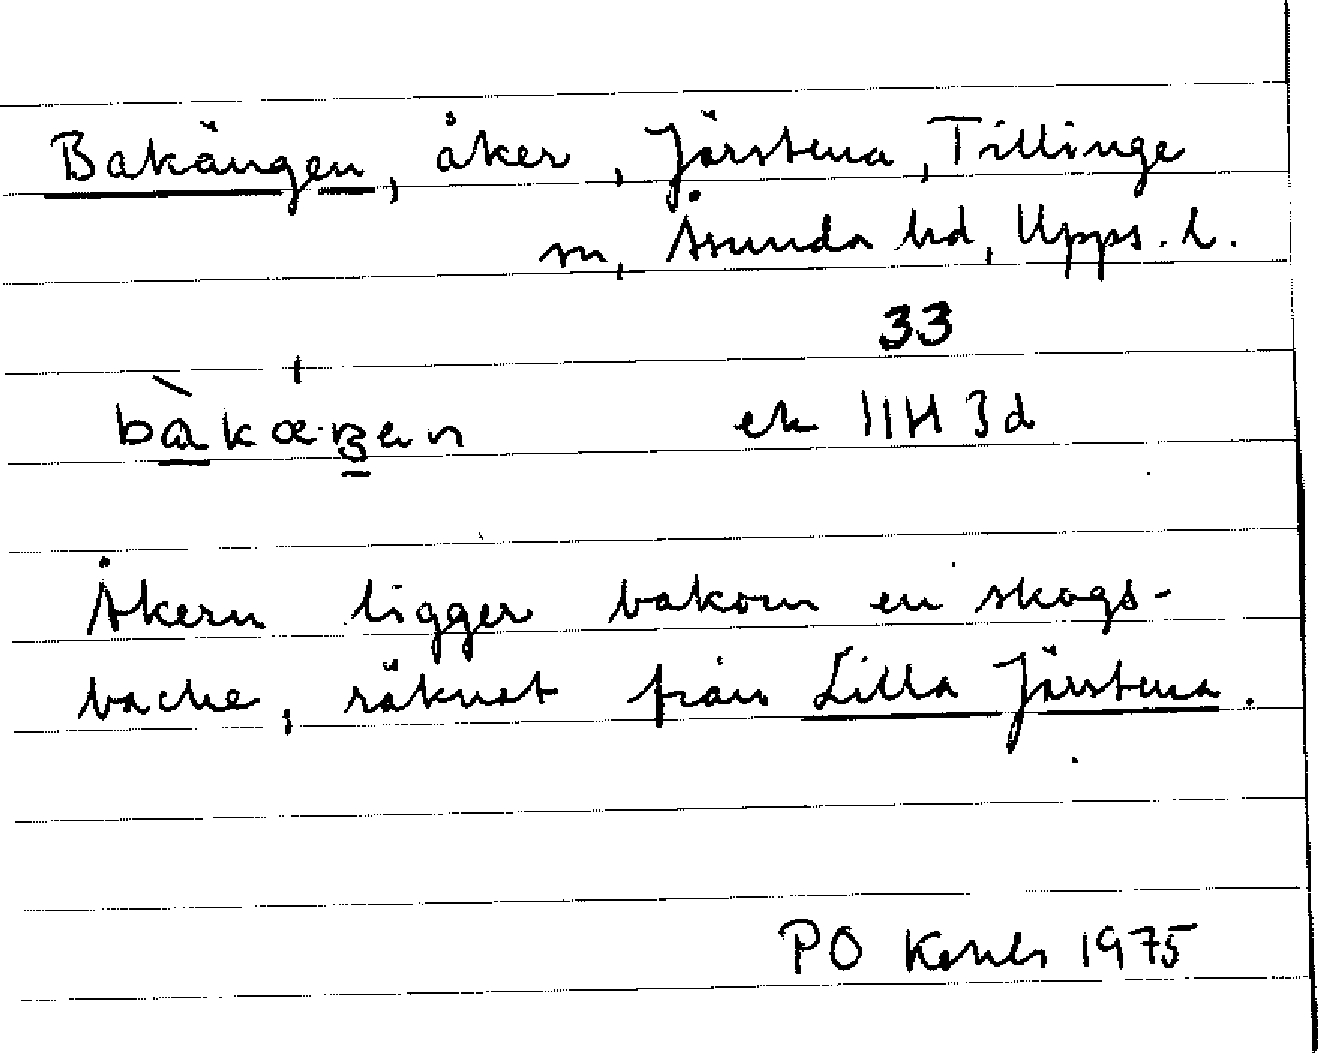 Bakängen, åker, Järstena, Tillinge
sn, Åsunda hd, Upps. l.
33
ek 11H 3d
Åkern ligger bakom en skogs-
backe, räknat från Lilla Järstena.
PO 1975